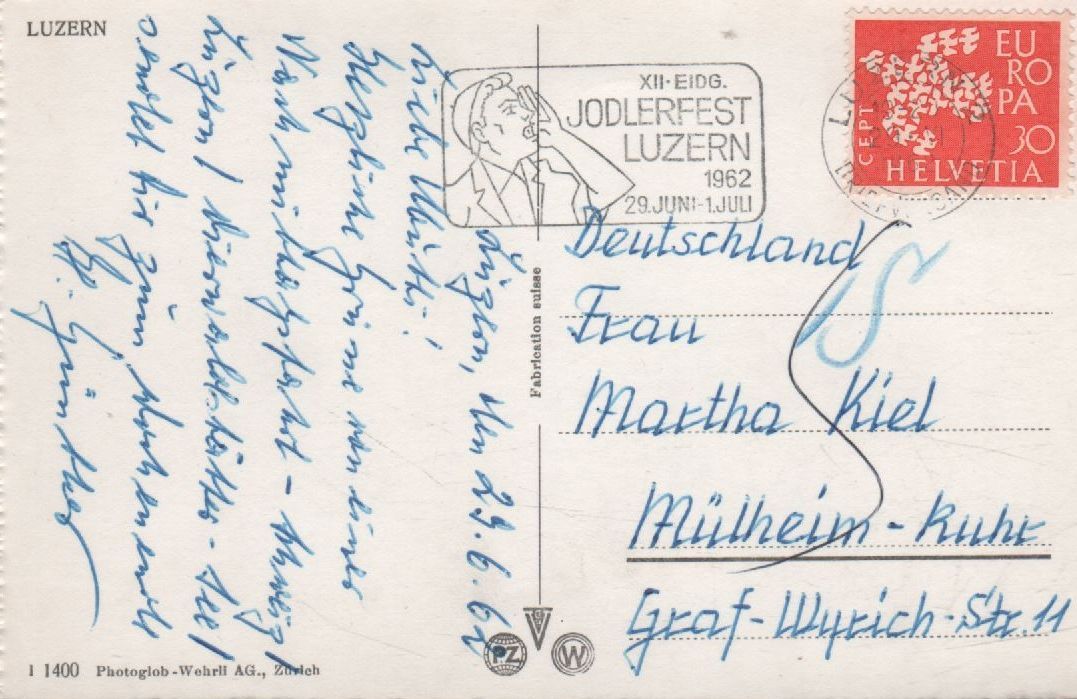 LUZERN
XII. EIDG.
JODLERFEST
LUZERN
1962
29. JUNI-1. JULI
EU
RO
PA
30
CEPT
HELVETIA
Luzern, den 29. 6. 62
Liebe Mutti!
Herzliche Grüsse von einer
Nachmittagsfahrt -
Luzern / Vierwaldstätter-See /
bis zum Wochenende
Günther
Fabrication suisse
Deutschland
Frau
Martha Kiel
Mülheim-Ruhr
Graf-Wyrich-Str. 11
PZ
W
1 1400 Photoglob-Wehrli AG., Zürich